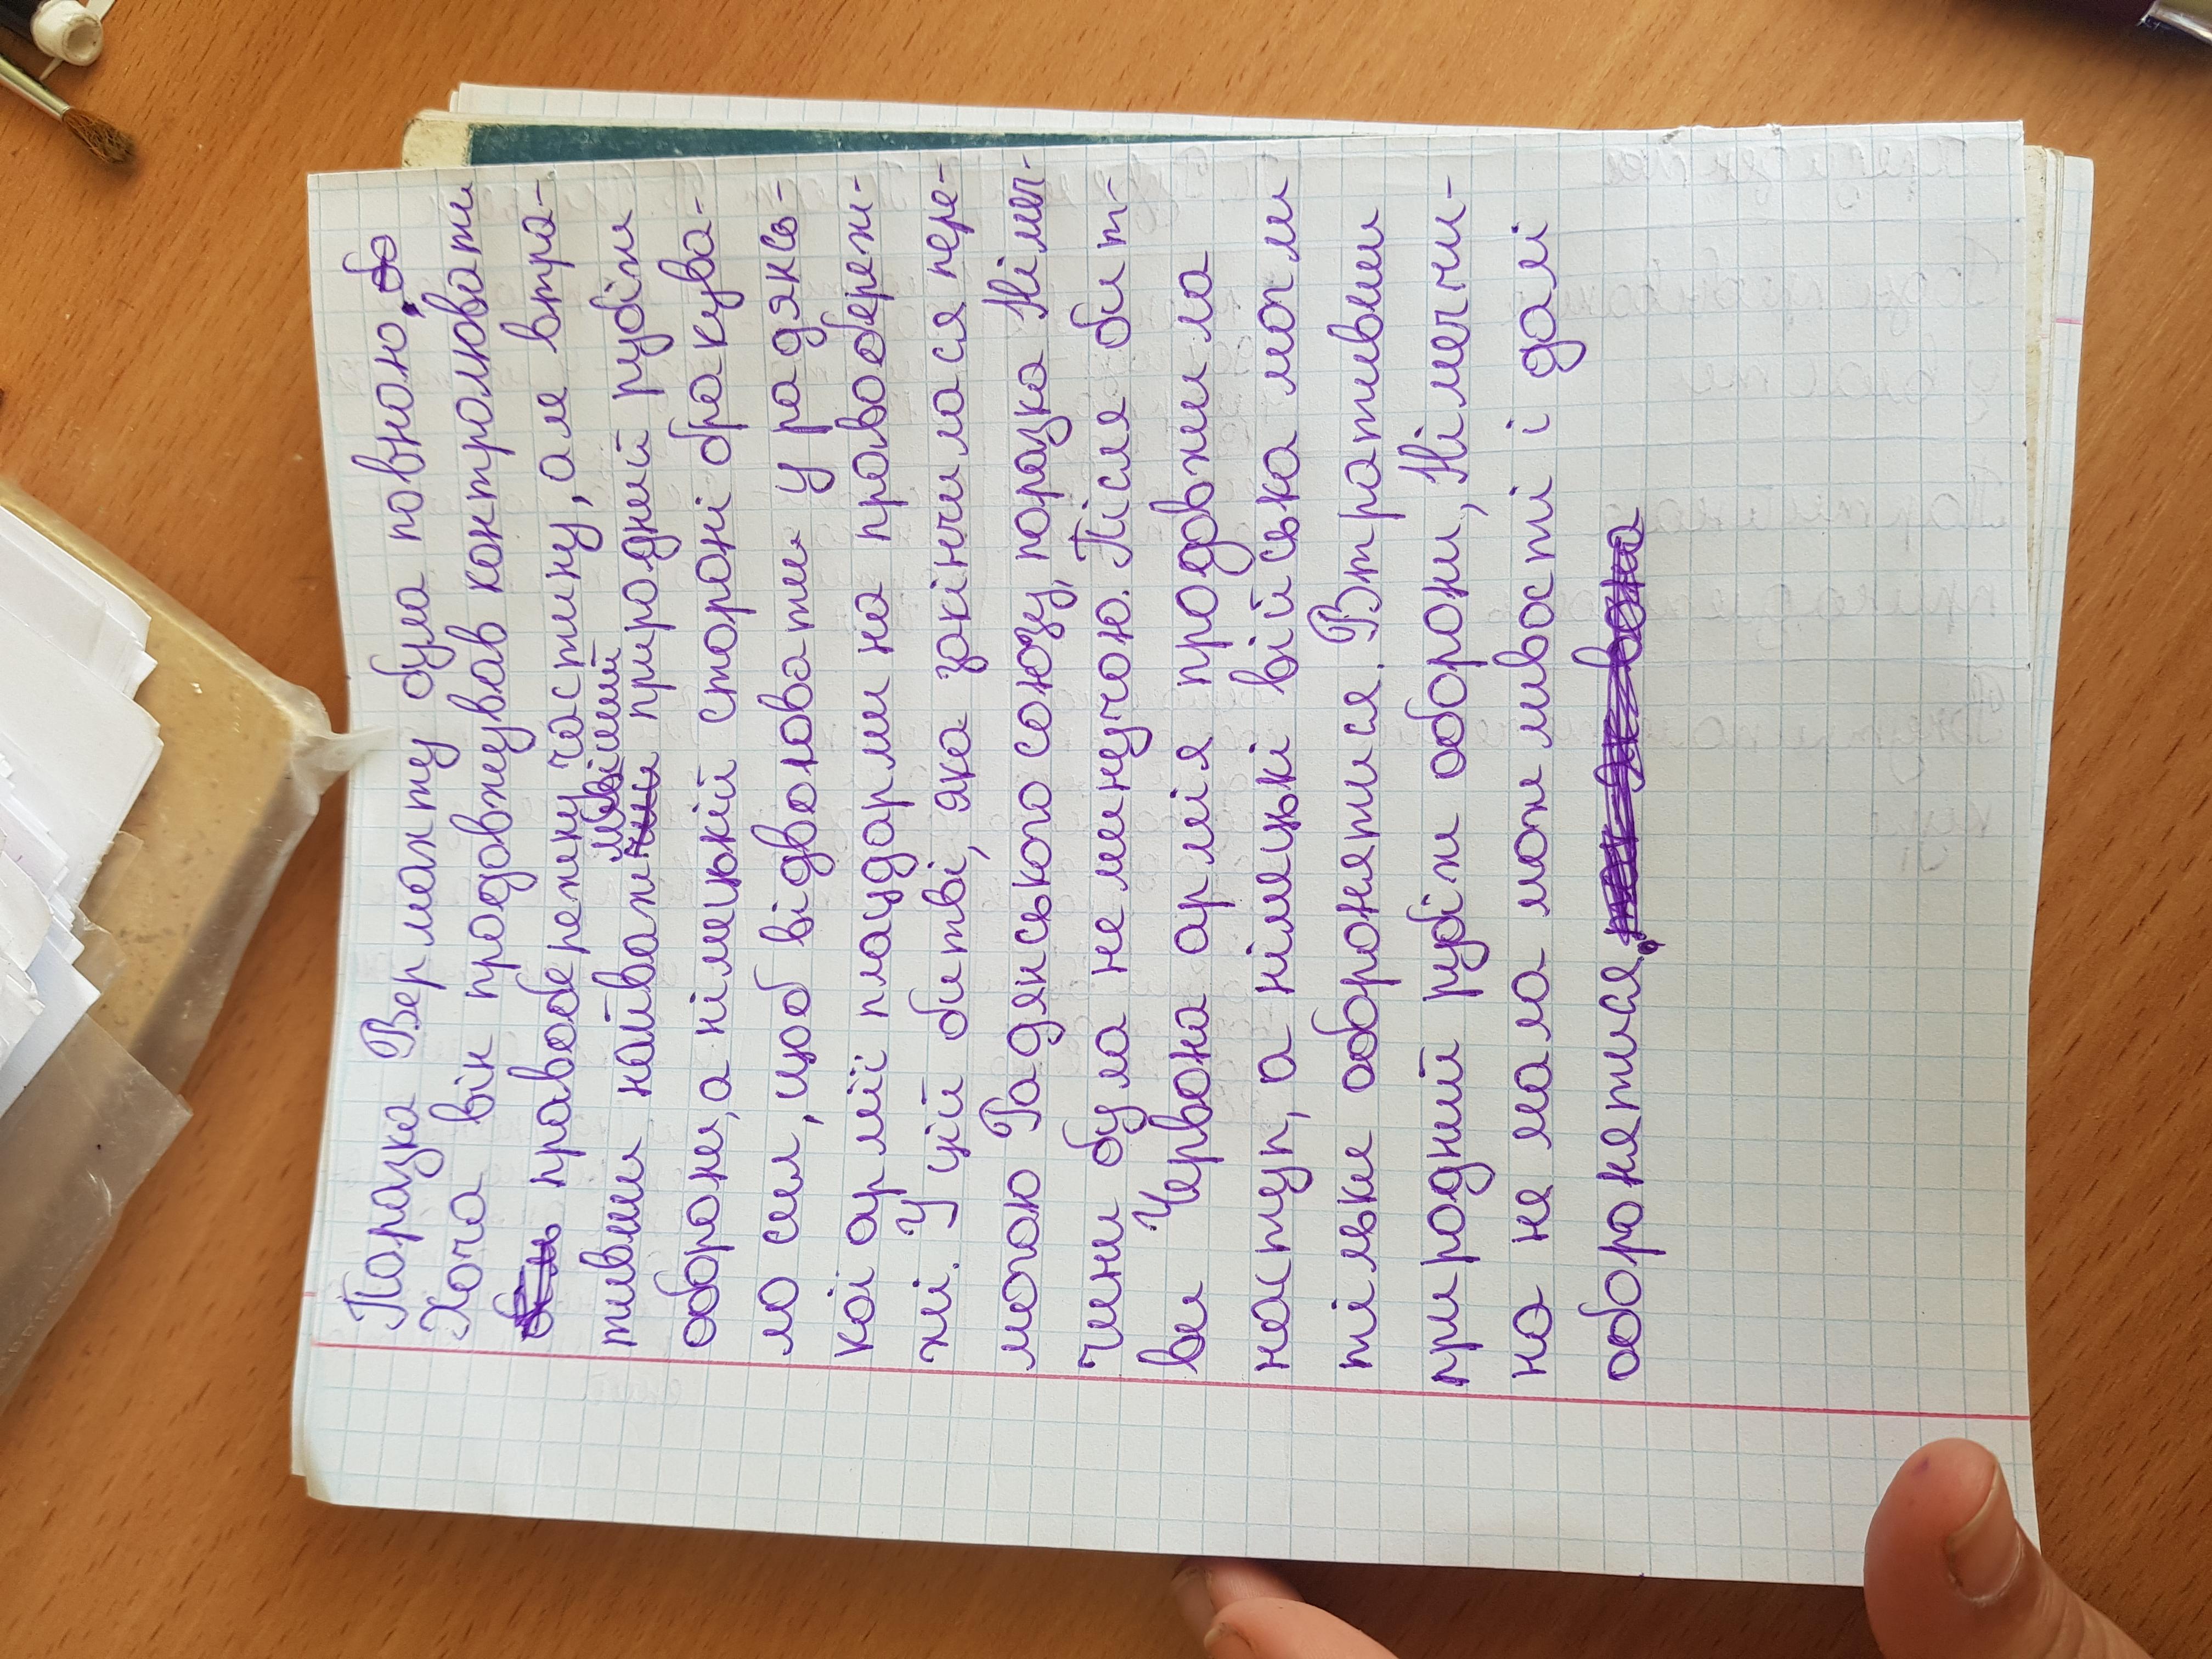 Поразка Вермахту була повною.
Хоча він продовжував контролювати
правобережну частину, але втра-
тивши найважливіший природний рубіж
оборони, а німецькій стороні бракува-
ло сил, щоб відвоювати у радянсь-
кої армії плацдарми на правобереж-
жі. У цій битві, яка закінчилася пере-
могою Радянського союзу, поразка Німеч-
чини була неминучою. Після бит-
ви Червона армія продовжила
наступ, а німецькі війська могли
тільки оборонятися. Втративши
природний рубіж оборони, Німеччи-
на не мала можливості і далі
оборонятися.